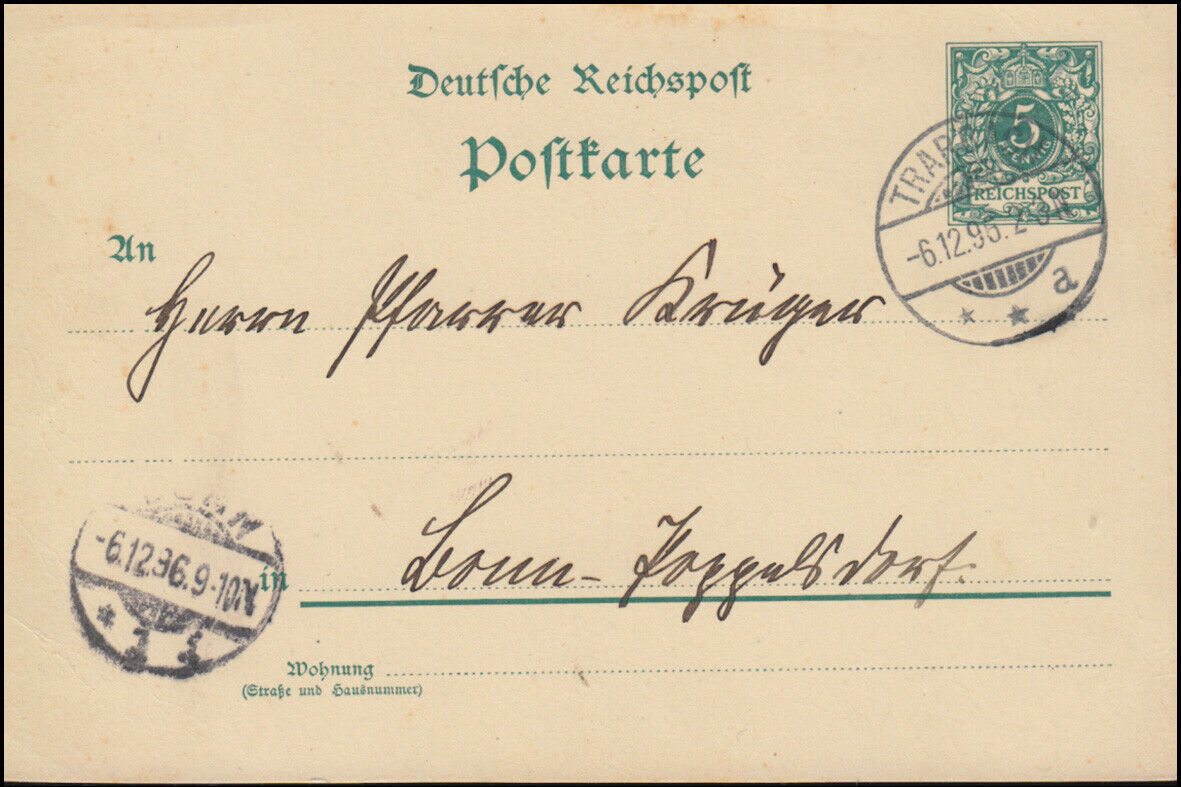 Deutsche Reichspost
Postkarte
5
PFENNIG
REICHSPOST
-6.12.96. 2-3N
a
An
Herrn Pfarrer Krüger
-6.12.96.9-10N
in Bonn-Poppelsdorf.
Wohnung
(Straße und Hausnummer)